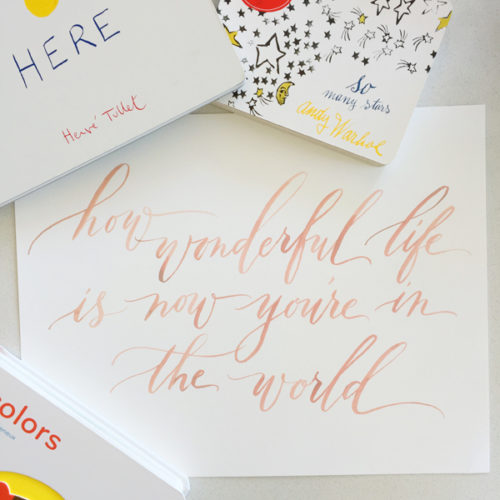 HERE
Hervé Tullet
so
many stars
Andy Warhol
how wonderful life
is now you're in
the world
colors